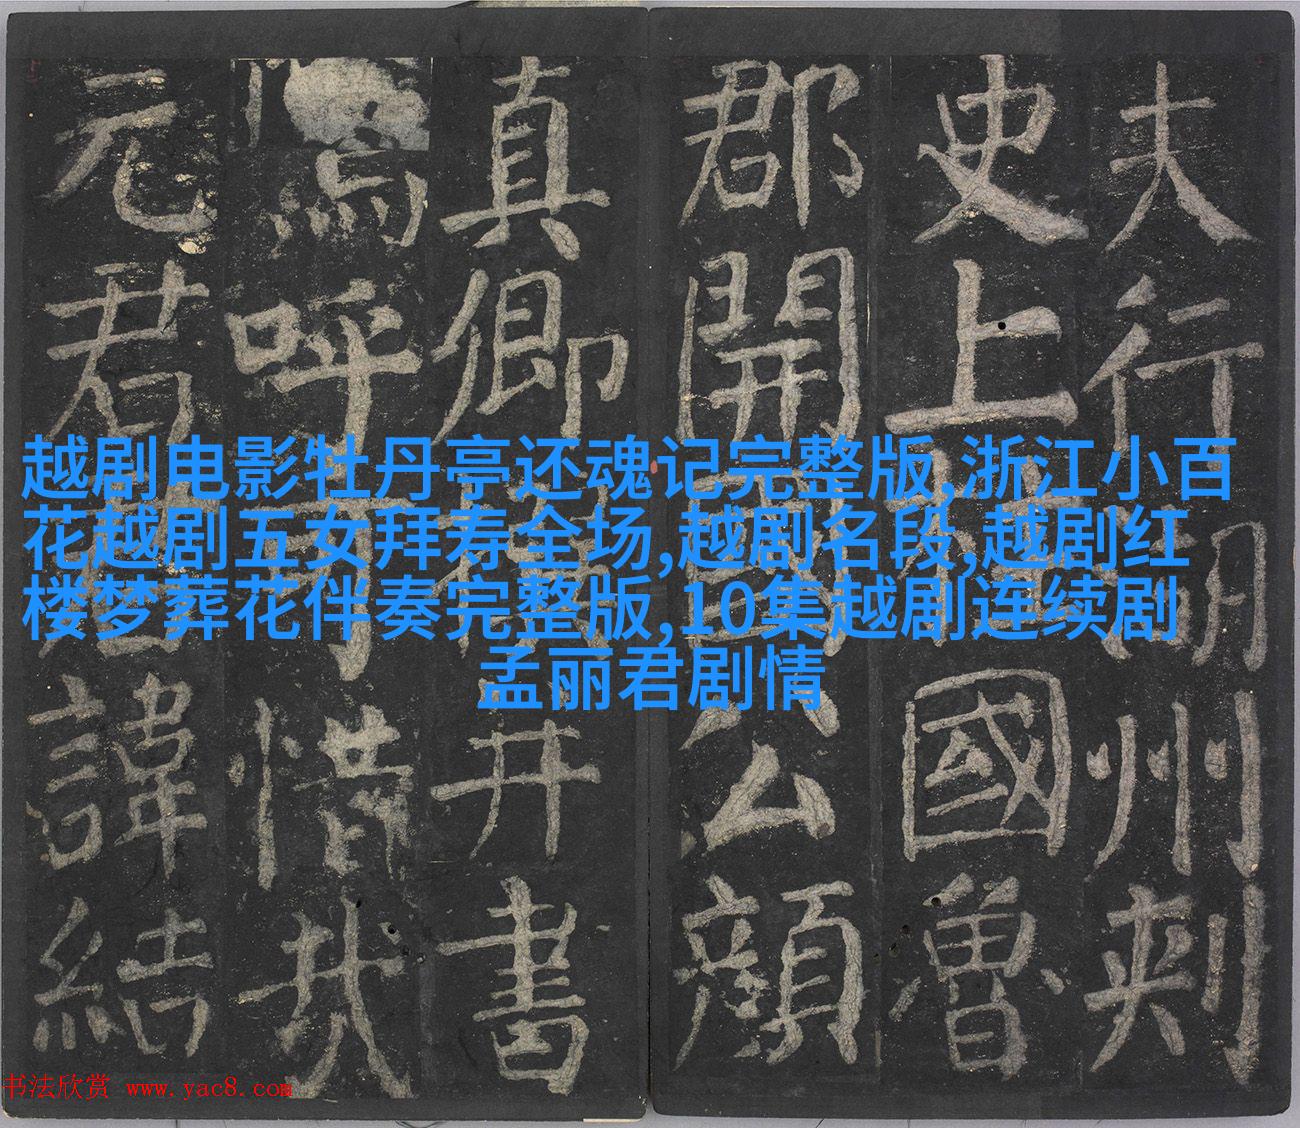 夫行湖州刺
史上柱國魯
郡開國公顏
真卿撰并書
嗚呼可惜哉
元君諱結
越剧电影牡丹亭还魂记完整版,浙江小百
花越剧五女拜寿全场,越剧名段,越剧红
楼梦葬花伴奏完整版,10集越剧连续剧
孟丽君剧情
书法欣赏 www.yac8.com